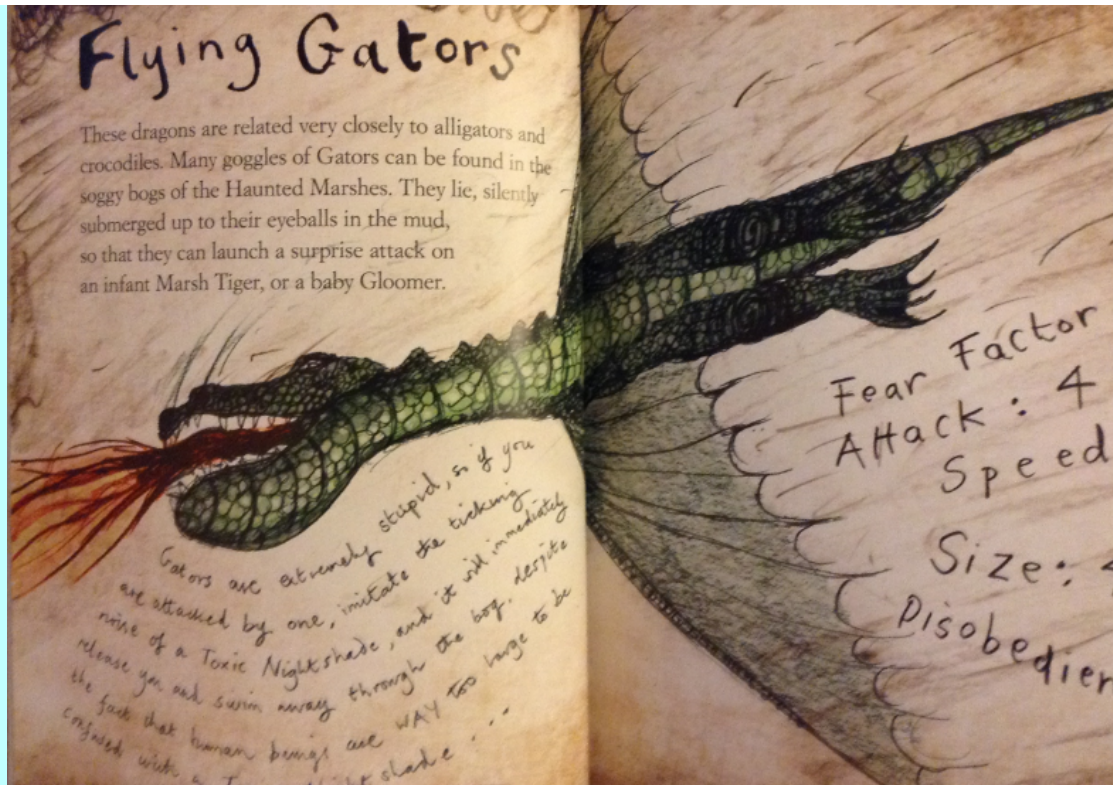 Flying Gators
These dragons are related very closely to alligators and
crocodiles. Many goggles of Gators can be found in the
soggy bogs of the Haunted Marshes. They lie, silently
submerged up to their eyeballs in the mud,
so that they can launch a surprise attack on
an infant Marsh Tiger, or a baby Gloomer.
Gators are extremely stupid, so if you
are attacked by one, imitate the ticking
noise of a Toxic Nightshade, and it will immediately
release you and swim away through the bog. despite
the fact that human beings are WAY TOO large to be
confused with a shade...
Fear Factor
Attack: 4
Speed
Size:
Disobedien